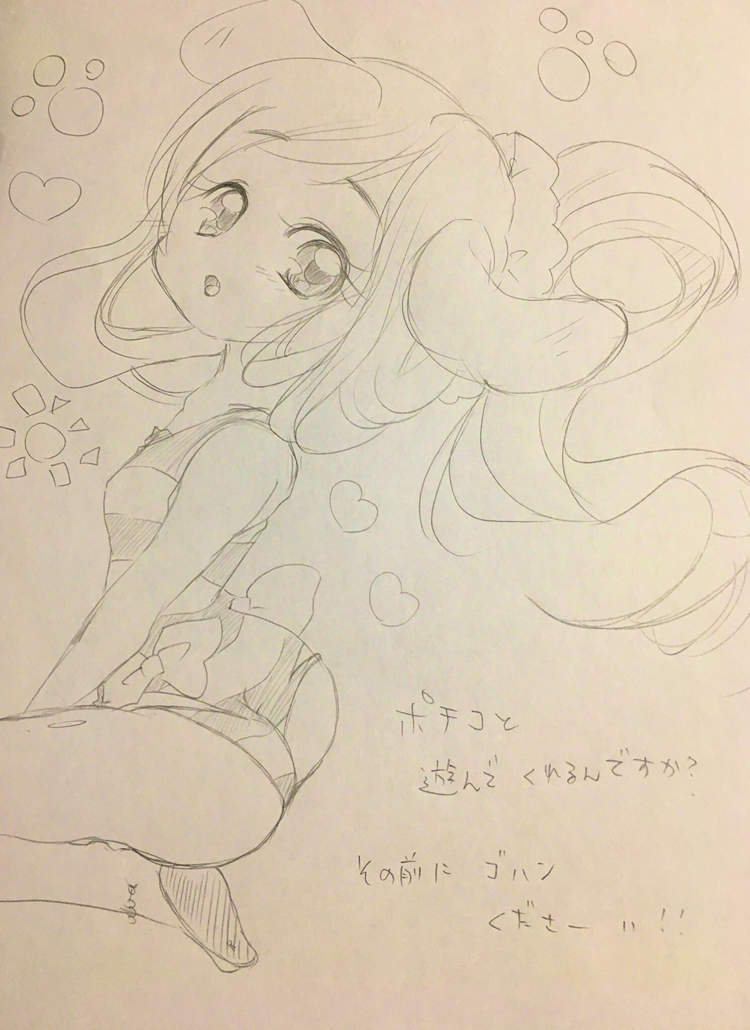 ポチコと
遊んで くれるんですか?
その前に ゴハン
くださーい!!